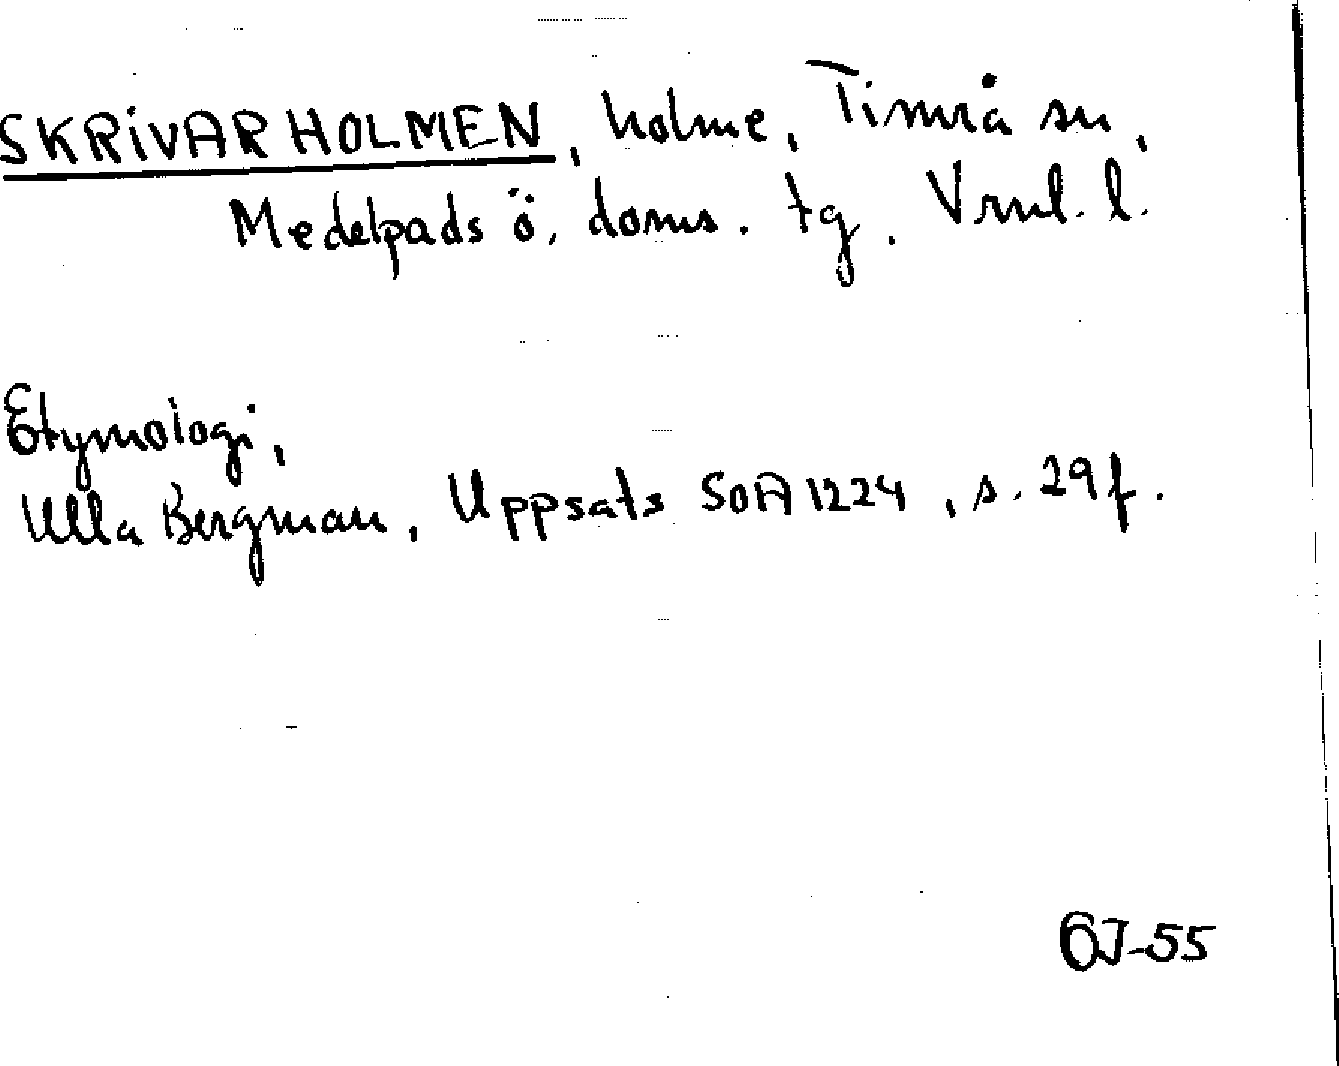 SKRIVARHOLMEN, holme, Timrå sn,
Medelpads ö. doms. tg. Vrnl. l.
Etymologi,
Ulla Bergman, Uppsats SOA 1224, s. 29 f.
OJ-55